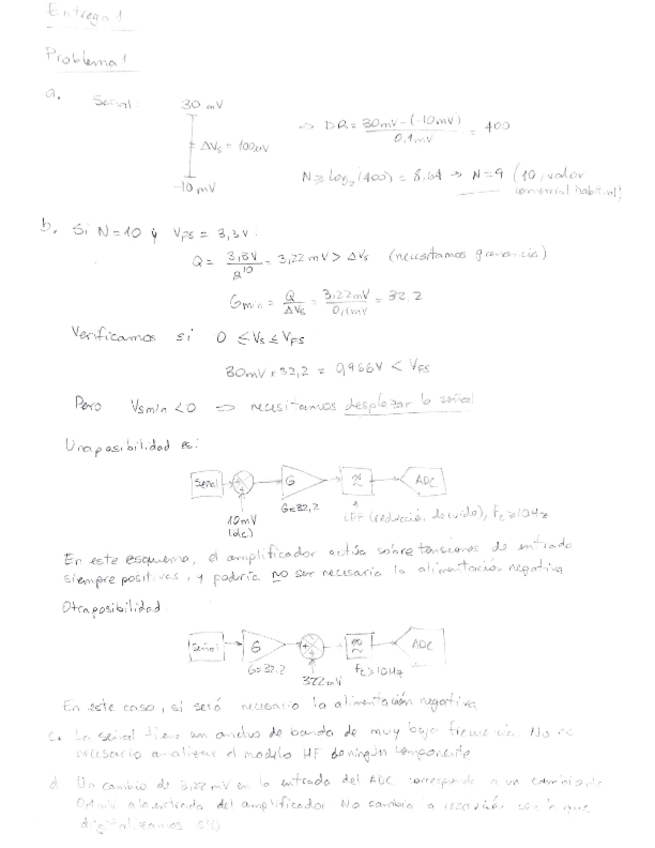 Entrega 1
Problema 1
a. Señal: 30 mV
ΔVs = 100uV
-10 mV
=> DR = 30mV-(-10mV) / 0,1mV = 400
N ≥ log2 (400) = 8,64 → N=9 (10, valor
comercial habitual)
b. Si N=10 y VFS = 3,3V:
Q = 3,3V / 2^10 = 3,22 mV > ΔVs (necesitamos ganancia)
Gmin = Q / ΔVs = 3,22mV / 0,1mV = 32.2
Verificamos si 0 ≤ Vs ≤ VFS
30mV x 32,2 = 0,966V < VFS
Pero Vsmin < 0 => necesitamos desplazar la señal
Una posibilidad es:
Señal + G ADC
G=32,2
10mV
(dc)
(reducción de ruido), fc ≥ 10Hz
En este esquema, el amplificador actúa sobre tensiones de entrada
siempre positivas, y podría no ser necesaria la alimentación negativa
Otra posibilidad
Señal G + ADC
G=32.2
322mV
fc ≥ 10Hz
En este caso, si será necesario la alimentación negativa
c. La señal tiene un ancho de banda de muy baja frecuencia. No es
necesario analizar el modelo HF de ningún componente
d. Un cambio de 3,22 mV en la entrada del ADC corresponde a un cambio de
0,1mV a la entrada del amplificador. No cambia la con la que
digitalizamos